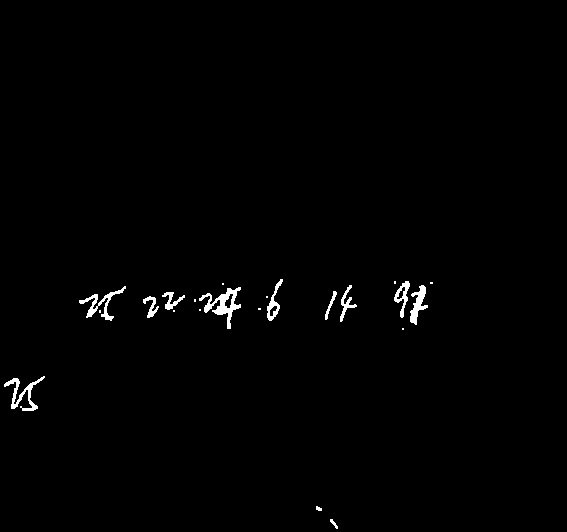 25 22 24 6 14 97
25